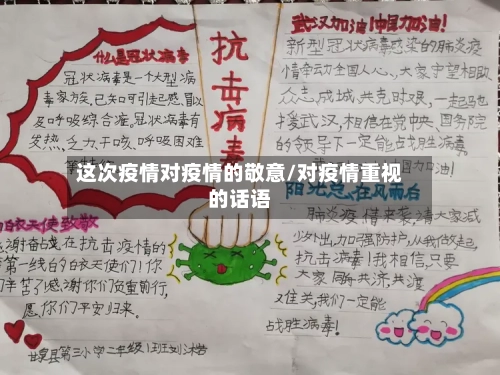 什么是冠状病毒
冠状病毒是一个大型病
毒家族,已知可引起感冒以
及呼吸综合症。冠状病毒有
发热,乏力,干咳,呼吸困难
抗击病毒
武汉加油!中国加油!
新型冠状病毒感染的肺炎疫
情牵动全国人心,大家守望相助
众志成城,共克时艰,一起马也
援武汉,相信在党中央、国务院
的领导下一定能战胜病毒。
这次疫情对疫情的敬意/对疫情重视
的话语
阳光总在风雨后
肺炎疫情来袭,请大家减
少外出,加强防护,从我做起,
抗击病毒!我相信,只要
大家同舟共济,共渡
难关,我们一定能
战胜病毒!
白衣天使致敬
谢奋战在抗击疫情的
第一线的白衣天使们!你
们辛苦了!感谢你们负重前行,
愿你们平安归来。
县第三小学二年级